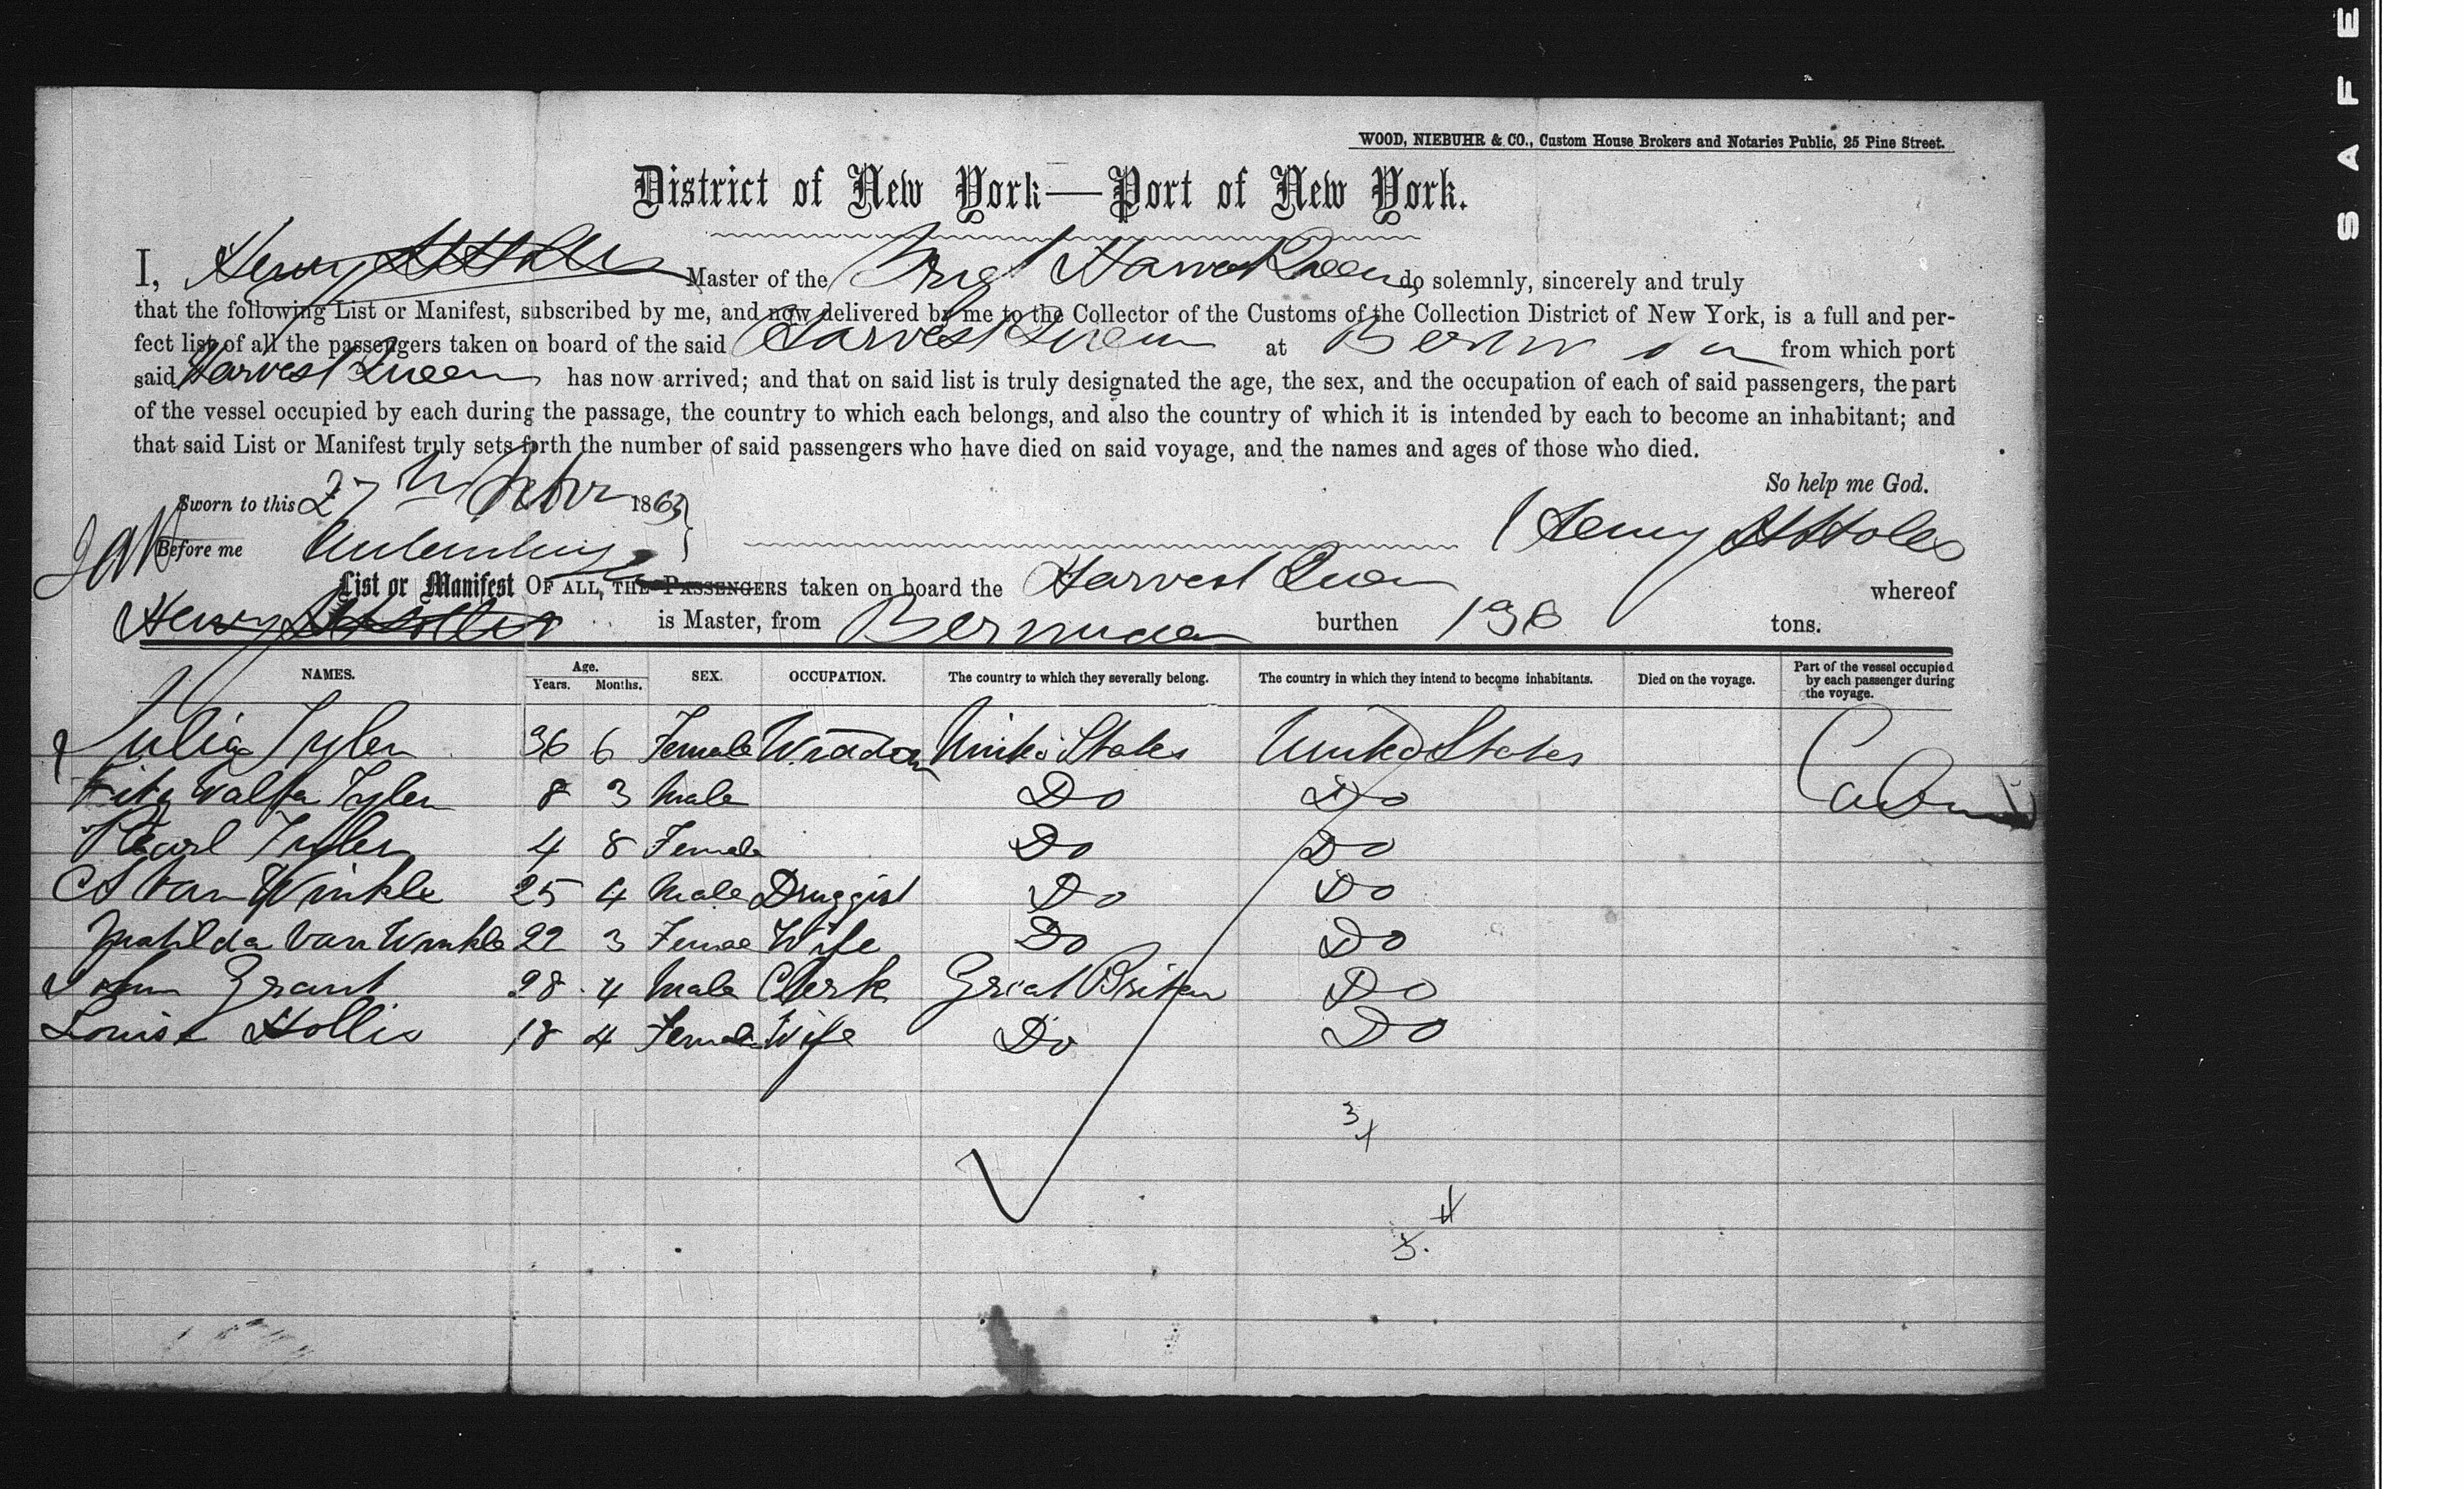 SAFE
WOOD, NIEBUHR & CO., Custom House Brokers and Notaries Public, 25 Pine Street.
District of New York—Port of New York.
I, Henry H Hollis Master of the Brig Harvest Queen do solemnly, sincerely and truly
that the following List or Manifest, subscribed by me, and now delivered by me to the Collector of the Customs of the Collection District of New York, is a full and per-
fect list of all the passengers taken on board of the said Harvest Queen at Bermuda from which port
said Harvest Queen has now arrived; and that on said list is truly designated the age, the sex, and the occupation of each of said passengers, the part
of the vessel occupied by each during the passage, the country to which each belongs, and also the country of which it is intended by each to become an inhabitant; and
that said List or Manifest truly sets forth the number of said passengers who have died on said voyage, and the names and ages of those who died.
So help me God.
Sworn to this 27th Novr 1863
Before me Henry H Hollis
List or Manifest OF ALL, THE PASSENGERS taken on board the Harvest Queen whereof
Henry H Hollis is Master, from Bermuda burthen 198 tons.
NAMES. Age. Years. Months. SEX. OCCUPATION. The country to which they severally belong. The country in which they intend to become inhabitants. Died on the voyage. Part of the vessel occupied by each passenger during the voyage.
Julia Tyler 36 6 Female United States United States Cabin
Fitz Walter Tyler 8 3 Male Do Do
Pearl Tyler 4 8 Female Do Do
Van Winkle 25 4 Male Druggist Do Do
Matilda Van Winkle 22 3 Femae Wife Do Do
John Grant 28 4 Male Clerk Great Britan Do
Louise Hollis 18 4 Female Wife Do Do
3
4
4
3.